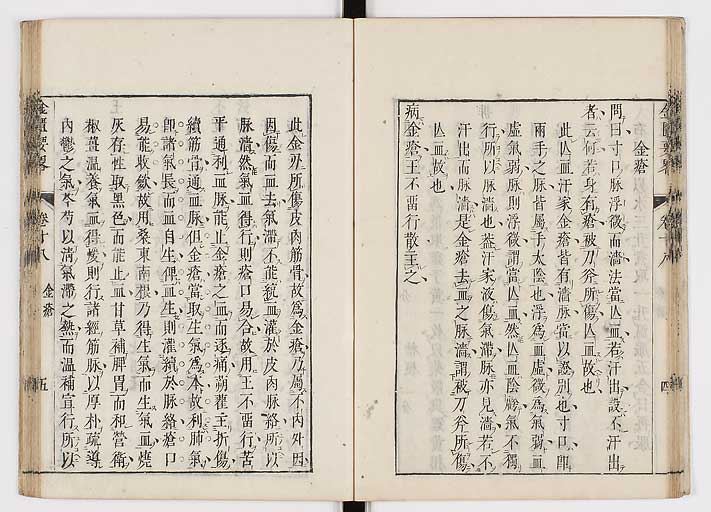 金瘡
問曰寸口脉浮微而濇法當亡血若汗出設不汗出
者云何若身有瘡被刀斧所傷亡血故也
此亡血汗家金瘡皆有濇脉當以證別也寸口即
兩手之脉皆屬手太陰也浮爲血虛微爲氣弱血
虛氣弱脉則浮微謂當亡血然亡血陰臟氣不獨
行所以脉濇也蓋汗家液傷氣滯脉亦見濇若不
汗出而脉濇是金瘡去血之脉濇謂被刀斧所傷
亡血故也
病金瘡王不畱行散主之
卷十八
四
此金刃所傷皮肉筋骨故爲金瘡乃屬不內外因
因傷而血去氣滯不能統血灌於皮肉脉絡所以
脉濇然氣血得行則瘡口易合故用王不畱行苦
平通利血脉能止金瘡之血而逐痛蒴藋主折傷
續筋骨通血脉但金瘡當取生氣爲本故利肺氣
即諸氣長而血自生俾血生則灌續於脉絡瘡口
易能收斂故用桑東南根乃得生氣而生氣血燒
灰存性取黑色而能止血甘草補脾胃而和營衛
椒薑溫養氣血得煖則行諸經筋脉以厚朴疏導
內鬱之氣芩芍以清氣滯之熱而溫補宣行所以
金匱要畧
卷十八
金瘡
五